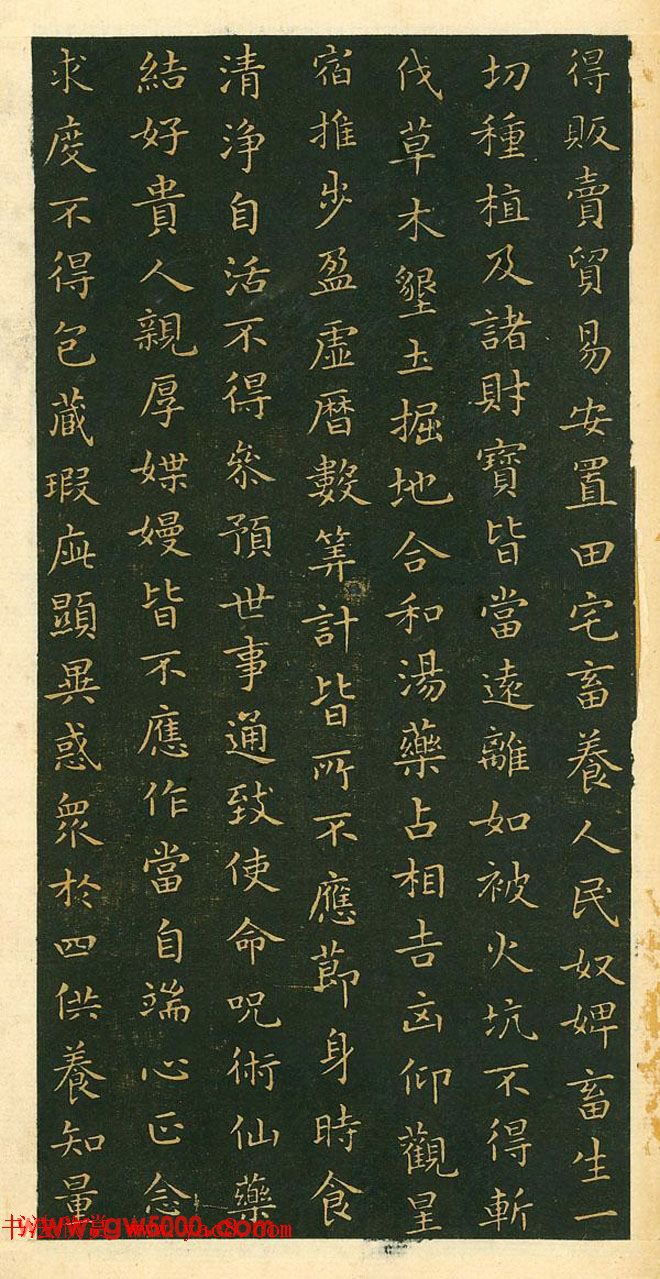 得販賣貿易安置田宅畜養人民奴婢畜生一
切種植及諸財寶皆當遠離如被火坑不得斬
伐草木墾土掘地合和湯藥占相吉凶仰觀星
宿推步盈虛曆數筭計皆所不應節身時食
清淨自活不得參預世事通致使命呪術仙藥
結好貴人親厚媟嫚皆不應作當自端心正念
求度不得包藏瑕疵顯異惑眾於四供養知量